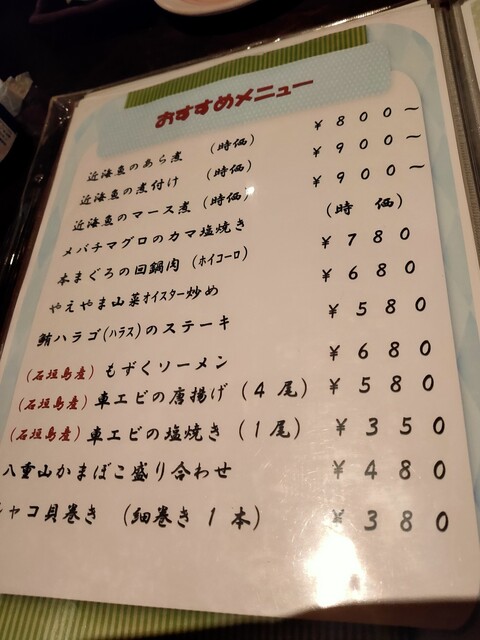 おすすめメニュー
近海魚のあら煮 (時価) ¥800~
近海魚の煮付け (時価) ¥900~
近海魚のマース煮 (時価) ¥900~
メバチマグロのカマ塩焼き (時価)
本まぐろの回鍋肉 (ホイコーロ) ¥780
やえやま山菜オイスター炒め ¥680
鮪ハラゴ(ハラス)のステーキ ¥580
(石垣島産) もずくソーメン ¥680
(石垣島産) 車エビの唐揚げ (4尾) ¥580
(石垣島産) 車エビの塩焼き (1尾) ¥350
八重山かまぼこ盛り合わせ ¥480
ャコ貝巻き (細巻き1本) ¥380